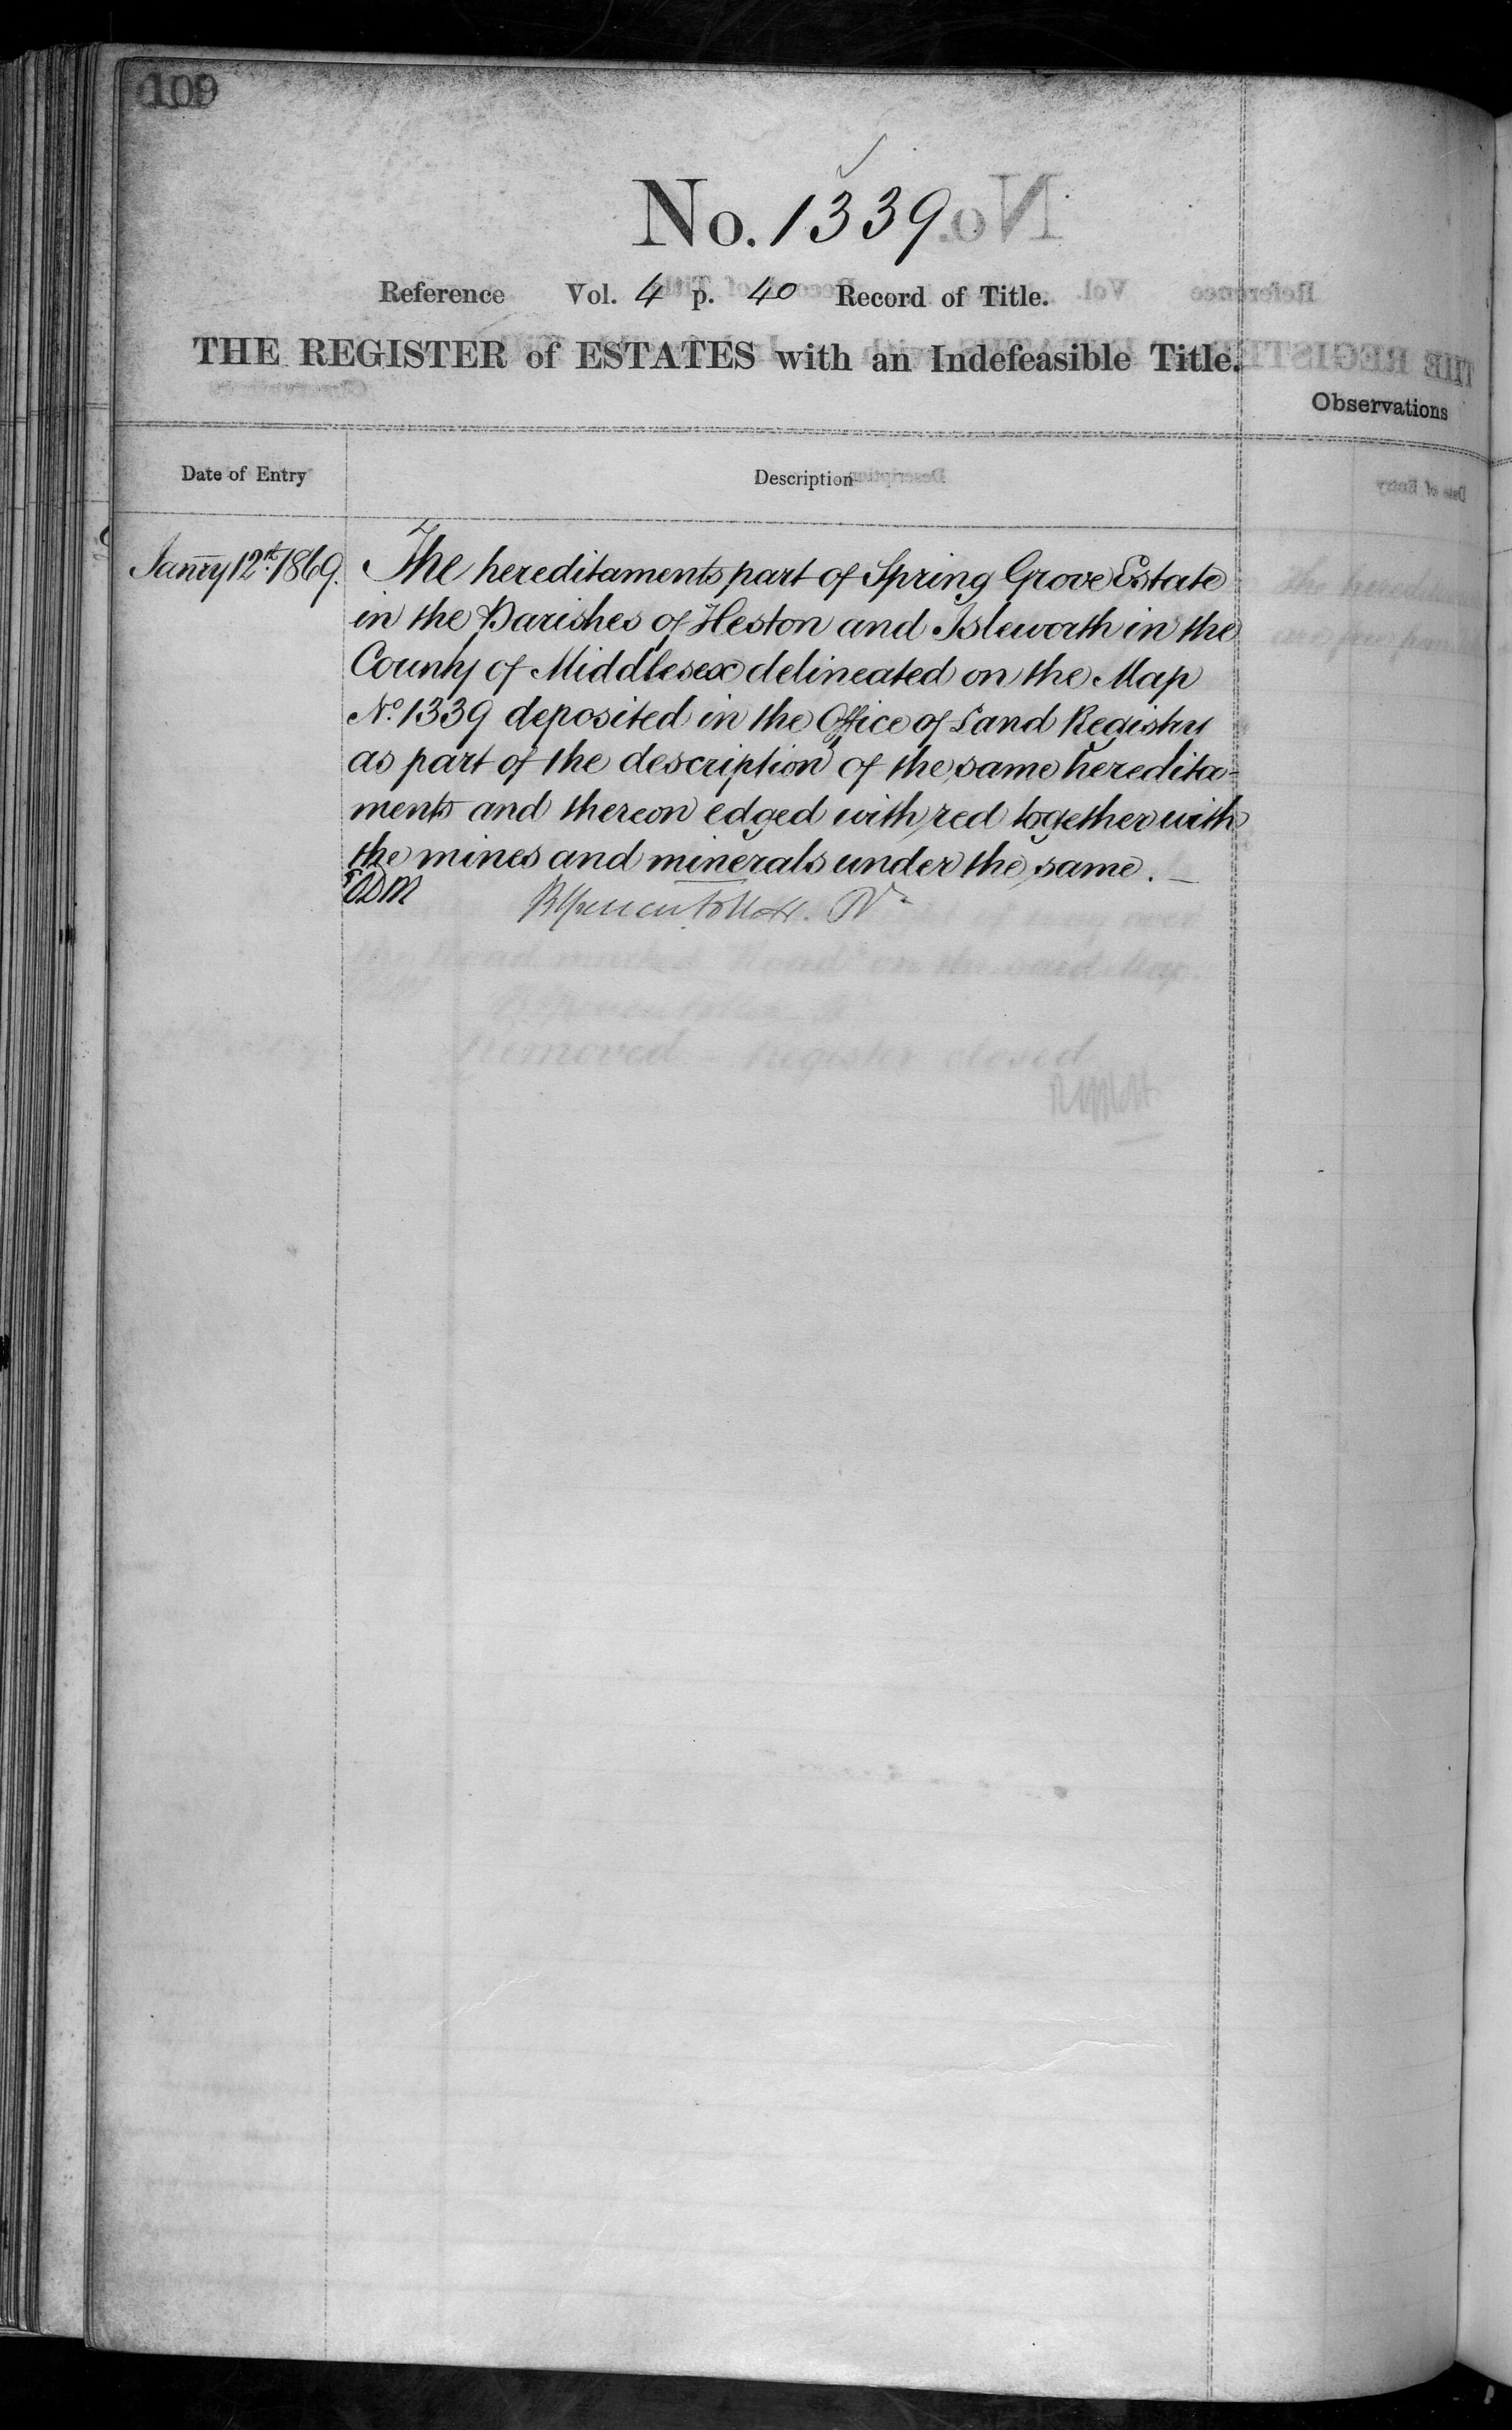 109
No. 1339
Reference Vol. 4 p. 40 Record of Title.
THE REGISTER of ESTATES with an Indefeasible Title.
Observations
Date of Entry
Description
Janry 12th 1869.
The hereditaments part of Spring Grove Estate
in the Parishes of Heston and Isleworth in the
County of Middlesex delineated on the Map
No. 1339 deposited in the Office of Land Registry
as part of the description of the same heredita-
ments and thereon edged with red together with
the mines and minerals under the same.
Removed - Register closed